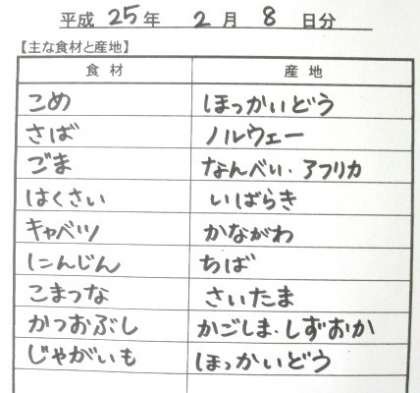 平成 25 年 2 月 8 日分
【主な食材と産地】
食材 産地
こめ ほっかいどう
さば ノルウェー
ごま なんべい・アフリカ
はくさい いばらき
キャベツ かながわ
にんじん ちば
こまつな さいたま
かつおぶし かごしま・しずおか
じゃがいも ほっかいどう